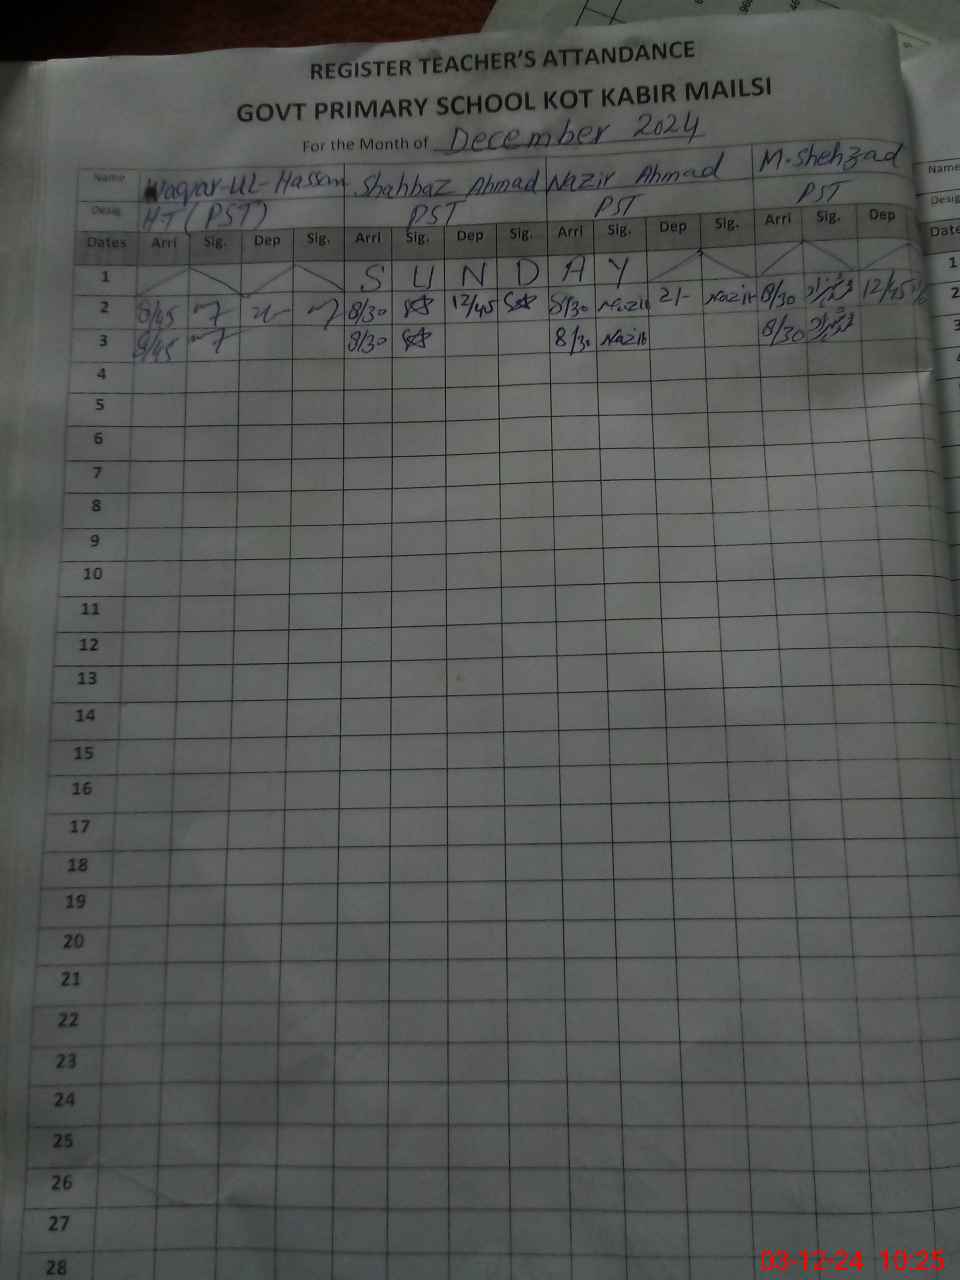 REGISTER TEACHER'S ATTANDANCE
GOVT PRIMARY SCHOOL KOT KABIR MAILSI
For the Month of December 2024
Name Waqar-Ul-Hassan Shahbaz Ahmad Nazir Ahmad M.Shehzad Name
Desig HT (PST) PST PST PST Desig
Dates Arri Sig. Dep Sig. Arri Sig. Dep Sig. Arri Sig. Dep Sig. Arri Sig. Dep Date
1 S U N D A Y 1
2 8/45 8/30 12/45 8/30 Nazir 2/- Nazir 8/30 12/45 2
3 8/45 8/30 8/30 Nazir 8/30 3
4
5
6
7
8
9
10
11
12
13
14
15
16
17
18
19
20
21
22
23
24
25
26
27
28
03-12-24 10:25